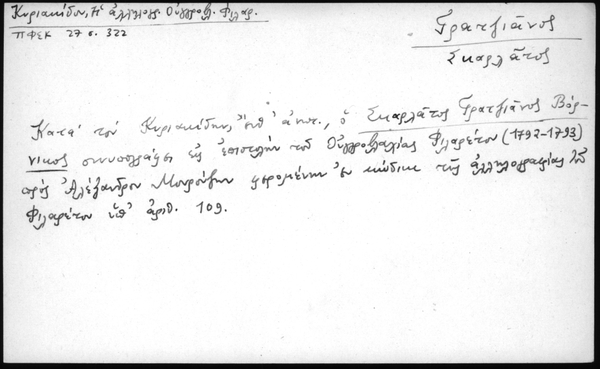 Κυριακίδου, Ἡ ἀλληλογρ. Οὑγγροβλ. Φιλαρ.
ΠΦΕΚ 27 σ. 322
Γρατζιᾶνος
Σκαρλᾶτος
Κατὰ τὸν Κυριακίδην, ἔνθ' ἀνωτ., ὁ Σκαρλᾶτος Γρατζιᾶνος Βόρ-
νικος εἰς ἐπιστολὴν τοῦ Οὑγγροβλαχίας Φιλαρέτου (1792-1793)
πρὸς Ἀλέξανδρον Μουρούζην φερομένην ἐν κώδικι τῆς ἀλληλογραφίας τοῦ
Φιλαρέτου ὑπ' ἀριθ. 109.